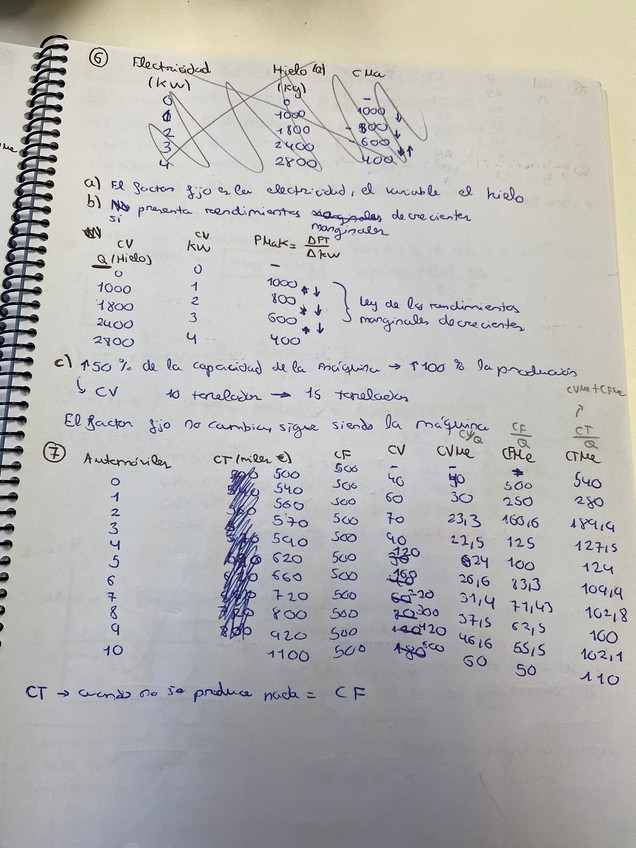 6 Electricidad Hielo (Q) CMa
(KW) (Kg)
0 0 -
1 1000 1000 ↓
2 1800 - 800 ↓
3 2400 - 600 ↓↑
4 2800 400
a) El factor fijo es la electricidad, el variable el hielo
b) No presenta rendimientos marginales decrecientes
si marginales
CV CV PMaK = ΔPT
Q (Hielo) KW ΔKW
0 0 -
1000 1 1000 ↓
1800 2 800 ↓
2400 3 600 ↓
2800 4 400
Ley de los rendimientos
marginales decrecientes
c) ↑50 % de la capacidad de la máquina → ↑100 % la producción
↳ CV 10 toneladas → 15 toneladas
CVMe + CFMe
El factor fijo no cambia, sigue siendo la máquina
CV/Q CF/Q CT/Q
7 Automóviles CT (miles €) CF CV CVMe CFMe CTMe
0 500 500 - -
1 540 500 40 40 500 540
2 560 500 60 30 250 280
3 570 500 70 23,3 166,6 189,9
4 590 500 90 22,5 125 127,5
5 620 500 120 24 100 124
6 660 500 160 26,6 83,3 109,9
7 720 500 220 31,4 71,43 102,8
8 800 500 300 37,5 62,5 100
9 920 500 420 46,6 55,5 102,1
10 1100 500 600 60 50 110
CT → cuando no se produce nada = CF